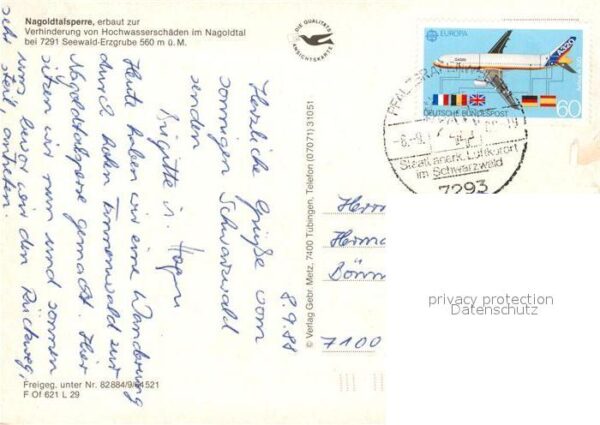 Nagoldtalsperre, erbaut zur
Verhinderung von Hochwasserschäden im Nagoldtal
bei 7291 Seewald-Erzgrube 560 m ü. M.
DIE QUALITÄTS
ANSICHTSKARTE
EUROPA
A320
60
DEUTSCHE BUNDESPOST
Staatl. anerk. Luftkurort
im Schwarzwald
7293
8.9.88
Herzliche Grüße vom
sonnigen Schwarzwald
senden
Brigitte u. Hagen
Heute haben wir eine Wanderung
durch hohen Tannenwald zur
Nagoldtalsperre gemacht. Hier
sitzen wir nun und sonnen
uns bevor wir den Rückweg,
sehr steil, antreten.
© Verlag Gebr. Metz, 7400 Tübingen, Telefon (07071) 31051
Herrn
Herma
Bönn
7100
privacy protection
Datenschutz
Freigeg. unter Nr. 82884/9/64521
F Of 621 L 29